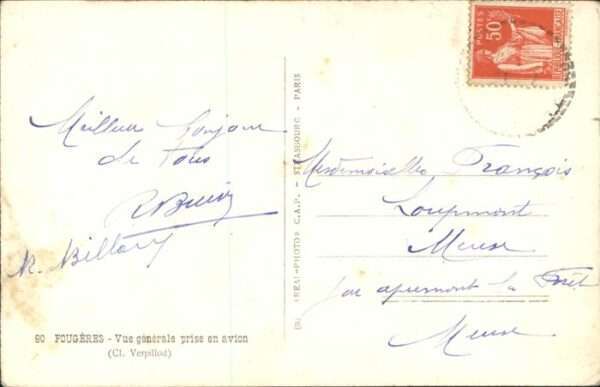 Meilleur bonjour
de tous
R. Billory
90 FOUGÈRES - Vue générale prise en avion
(Cl. Verpillod)
REAL-PHOTOS C.A.P. - STRASBOURG - PARIS
POSTES
50c
Mesdemoiselles François
Loupmont
Meuse
par apremont la Forêt
Meuse